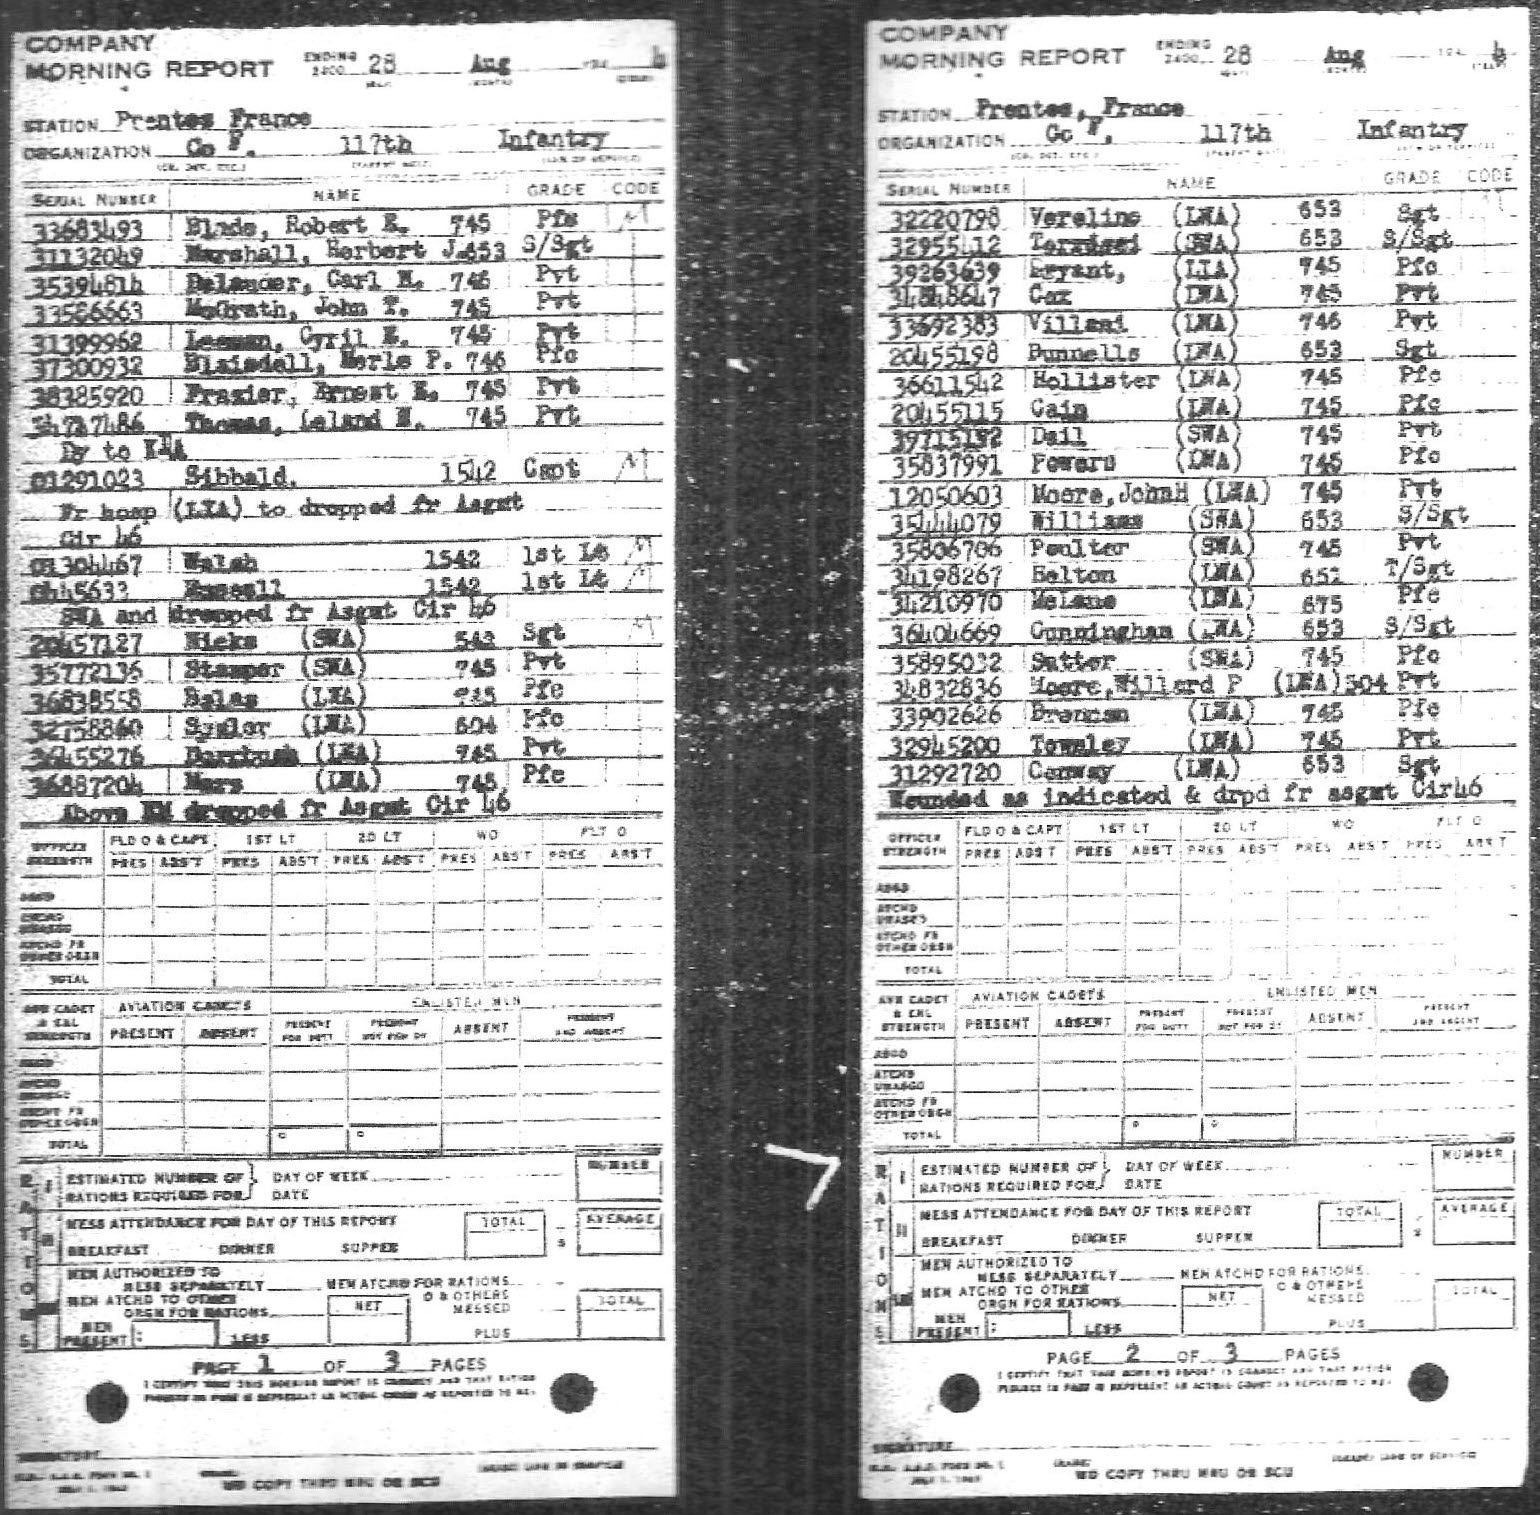 COMPANY
MORNING REPORT ENDING 2400 28 Aug 194
STATION Prentes France
ORGANIZATION Co F. 117th Infantry
SERIAL NUMBER NAME GRADE CODE
33683493 Blade, Robert E. 745 Pfc
31132049 Marshall, Herbert J. 653 S/Sgt
35394814 Carl M. 746 Pvt
33566663 McGrath, John T. 745 Pvt
31399962 Leeman, Cyril E. 745 Pvt
37300932 Blaisdell, Merle P. 746 Pfc
38385920 Frazier, Ernest E. 745 Pvt
34737486 Thomas, Leland 745 Pvt
Dy to KIA
01291023 Sibbald. 1542 Capt
Fr hosp (LIA) to dropped fr Asgmt
Cir 46
01304467 Walsh 1542 1st Lt
1542 1st Lt
SWA and dropped fr Asgmt Cir 46
20457127 Hicks (SWA) 543 Sgt
35772136 Stamper (SWA) 745 Pvt
36838558 Balas (LWA) 745 Pfc
32758860 (LWA) 604 Pfc
36455276 (LWA) 745 Pvt
36887204 Mars (LWA) 745 Pfc
Above EM dropped fr Asgmt Cir 46
OFFICER STRENGTH FLD O & CAPT 1ST LT 2D LT WO FLT O
PRES ABS'T PRES ABS'T PRES ABS'T PRES ABS'T PRES ABS'T
ASGD
ATCHD UNASGD
ATCHD FR OTHER ORGN
TOTAL
AVN CADET & ENL STRENGTH AVIATION CADETS ENLISTED MEN
PRESENT ABSENT PRESENT FOR DUTY PRESENT NOT FOR DY ABSENT PRESENT AND ABSENT
ASGD
ATCHD UNASGD
ATCHD FR OTHER ORGN
TOTAL
RATIONS
I ESTIMATED NUMBER OF DAY OF WEEK NUMBER
RATIONS REQUIRED FOR DATE
II MESS ATTENDANCE FOR DAY OF THIS REPORT TOTAL AVERAGE
BREAKFAST DINNER SUPPER 3
MEN AUTHORIZED TO
MESS SEPARATELY MEN ATCHD FOR RATIONS
MEN ATCHD TO OTHER O & OTHERS
ORGN FOR RATIONS NET MESSED TOTAL
MEN PRESENT : LESS PLUS
PAGE 1 OF 3 PAGES
I CERTIFY THAT THIS MORNING REPORT IS CORRECT AND THAT RATION
FIGURES IN PART III REPRESENT AN ACTUAL COUNT AS REPORTED TO ME.
SIGNATURE
WD COPY THRU MRU OR SCU
COMPANY
MORNING REPORT ENDING 2400 28 Aug 194
STATION Prentes, France
ORGANIZATION Co F. 117th Infantry
SERIAL NUMBER NAME GRADE CODE
32220798 Vereline (LWA) 653 Sgt
32955412 (SWA) 653 S/Sgt
39263639 Bryant, (LIA) 745 Pfc
34848647 Cox (LWA) 745 Pvt
33692383 Villani (LWA) 746 Pvt
20455198 Bunnells (LWA) 653 Sgt
36611542 Hollister (LWA) 745 Pfc
20455115 Cain (LWA) 745 Pfc
39715192 Dail (SWA) 745 Pvt
35837991 Powers (LWA) 745 Pfc
12050603 Moore, JohnH (LWA) 745 Pvt
35444079 Williams (SWA) 653 S/Sgt
35806706 Poulter (SWA) 745 Pvt
34198267 Helton (LWA) 651 T/Sgt
34210970 McLane (LWA) 675 Pfc
36404669 Cunningham (LWA) 653 S/Sgt
35895032 Sutter (SWA) 745 Pfc
34832836 Moore, Willard P (LWA) 504 Pvt
33902626 Brennan (LWA) 745 Pfc
32945200 Townley (LWA) 745 Pvt
31292720 Conway (LWA) 653 Sgt
Wounded as indicated & drpd fr asgmt Cir46
OFFICER STRENGTH FLD O & CAPT 1ST LT 2D LT WO FLT O
PRES ABS'T PRES ABS'T PRES ABS'T PRES ABS'T PRES ABS'T
ASGD
ATCHD UNASGD
ATCHD FR OTHER ORGN
TOTAL
AVN CADET & ENL STRENGTH AVIATION CADETS ENLISTED MEN
PRESENT ABSENT PRESENT FOR DUTY PRESENT NOT FOR DY ABSENT PRESENT AND ABSENT
ASGD
ATCHD UNASGD
ATCHD FR OTHER ORGN
TOTAL
RATIONS
I ESTIMATED NUMBER OF DAY OF WEEK NUMBER
RATIONS REQUIRED FOR DATE
II MESS ATTENDANCE FOR DAY OF THIS REPORT TOTAL AVERAGE
BREAKFAST DINNER SUPPER 3
MEN AUTHORIZED TO
MESS SEPARATELY MEN ATCHD FOR RATIONS
MEN ATCHD TO OTHER O & OTHERS
ORGN FOR RATIONS NET MESSED TOTAL
MEN PRESENT : LESS PLUS
PAGE 2 OF 3 PAGES
I CERTIFY THAT THIS MORNING REPORT IS CORRECT AND THAT RATION
FIGURES IN PART III REPRESENT AN ACTUAL COUNT AS REPORTED TO ME.
SIGNATURE
WD COPY THRU MRU OR SCU